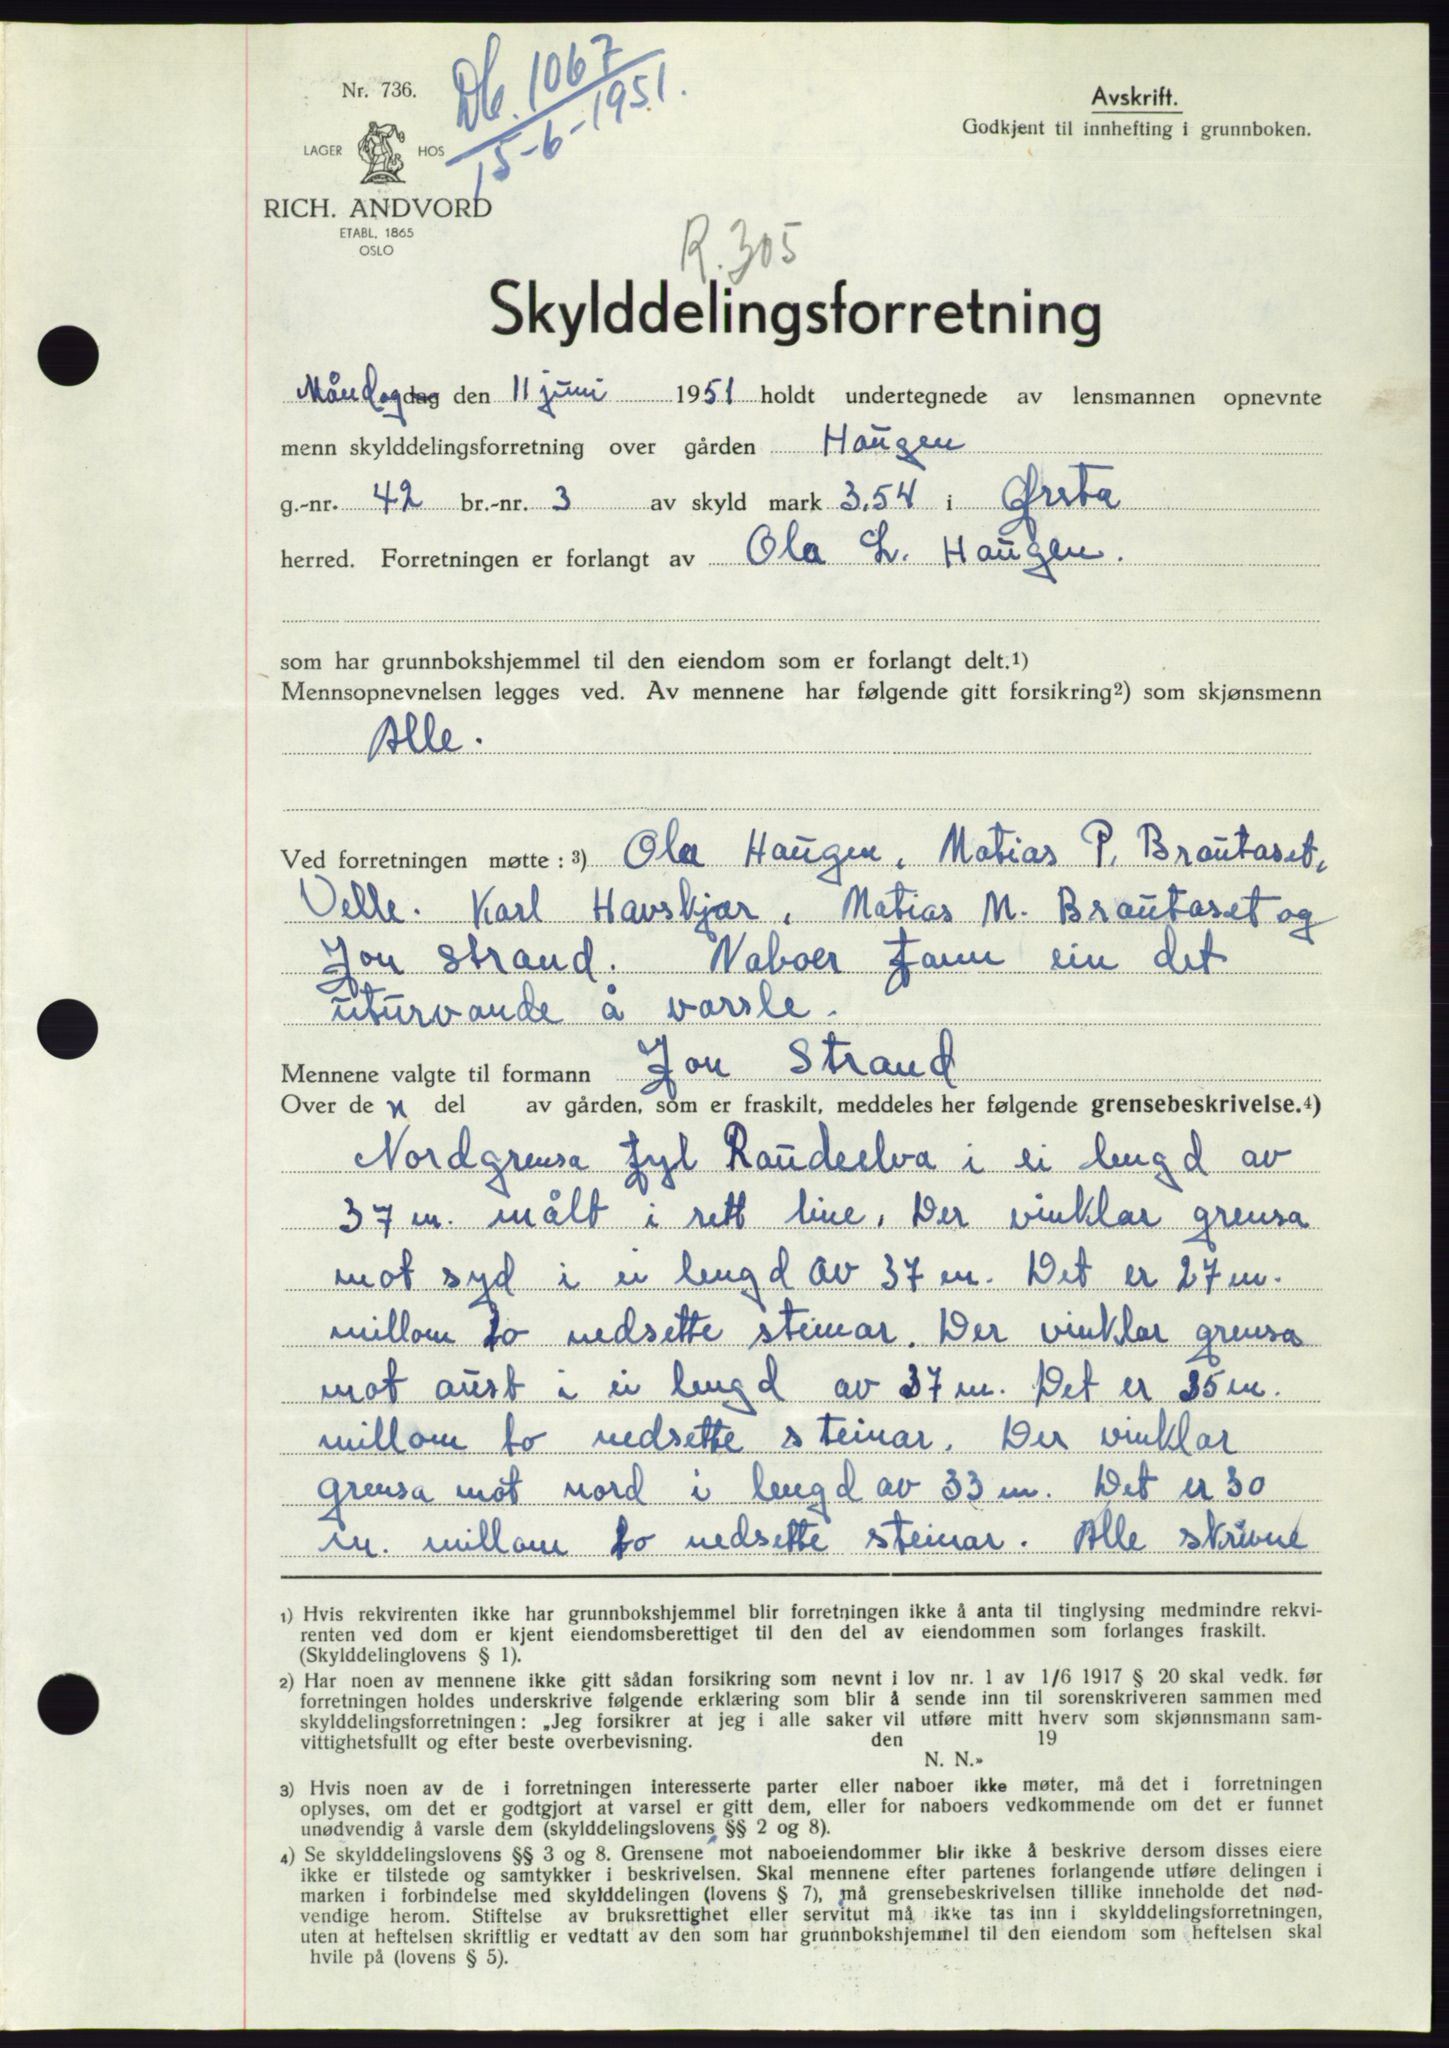 Nr. 736.
Db. 1067
15-6-1951.
Avskrift.
Godkjent til innhefting i grunnboken.
LAGER HOS
RICH. ANDVORD
ETABL. 1865
OSLO
R. 305
Skylddelingsforretning
Måndag dag den 11 juni 1951 holdt undertegnede av lensmannen opnevnte
menn skylddelingsforretning over gården Haugen
g.-nr. 42 br.-nr. 3 av skyld mark 3,54 i Ørsta
herred. Forretningen er forlangt av Ola L. Haugen.
som har grunnbokshjemmel til den eiendom som er forlangt delt.1)
Mennsopnevnelsen legges ved. Av mennene har følgende gitt forsikring2) som skjønsmenn
Alle.
Ved forretningen møtte: 3) Ola Haugen, Matias P. Brautaset,
Velle. Karl Havskjær, Matias M. Brautaset og
Jon Strand. Naboer fann ein det
uturvande å varsle.
Mennene valgte til formann Jon Strand
Over de n del av gården, som er fraskilt, meddeles her følgende grensebeskrivelse.4)
Nordgrensa fyl Raudeelva i ei lengd av
37 m. målt i rett line. Der vinklar grensa
mot syd i ei lengd av 37 m. Det er 27 m.
millom to nedsette steinar. Der vinklar grensa
mot aust i ei lengd av 37 m. Det er 35 m.
millom to nedsette steinar. Der vinklar
grensa mot nord i lengd av 33 m. Det er 30
m. millom to nedsette steinar. Alle skrivne
1) Hvis rekvirenten ikke har grunnbokshjemmel blir forretningen ikke å anta til tinglysing medmindre rekvi-
renten ved dom er kjent eiendomsberettiget til den del av eiendommen som forlanges fraskilt.
(Skylddelinglovens § 1).
2) Har noen av mennene ikke gitt sådan forsikring som nevnt i lov nr. 1 av 1/6 1917 § 20 skal vedk. før
forretningen holdes underskrive følgende erklæring som blir å sende inn til sorenskriveren sammen med
skylddelingsforretningen: „Jeg forsikrer at jeg i alle saker vil utføre mitt hverv som skjønnsmann sam-
vittighetsfullt og efter beste overbevisning. den 19
N. N.»
3) Hvis noen av de i forretningen interesserte parter eller naboer ikke møter, må det i forretningen
oplyses, om det er godtgjort at varsel er gitt dem, eller for naboers vedkommende om det er funnet
unødvendig å varsle dem (skylddelingslovens §§ 2 og 8).
4) Se skylddelingslovens §§ 3 og 8. Grensene mot naboeiendommer blir ikke å beskrive dersom disses eiere
ikke er tilstede og samtykker i beskrivelsen. Skal mennene efter partenes forlangende utføre delingen i
marken i forbindelse med skylddelingen (lovens § 7), må grensebeskrivelsen tillike inneholde det nød-
vendige herom. Stiftelse av bruksrettighet eller servitut må ikke tas inn i skylddelingsforretningen,
uten at heftelsen skriftlig er vedtatt av den som har grunnbokshjemmel til den eiendom som heftelsen skal
hvile på (lovens § 5).